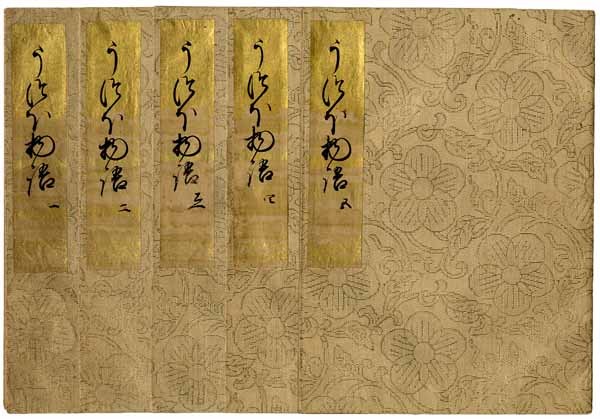 うつほ物語 一
うつほ物語 二
うつほ物語 三
うつほ物語 四
うつほ物語 五